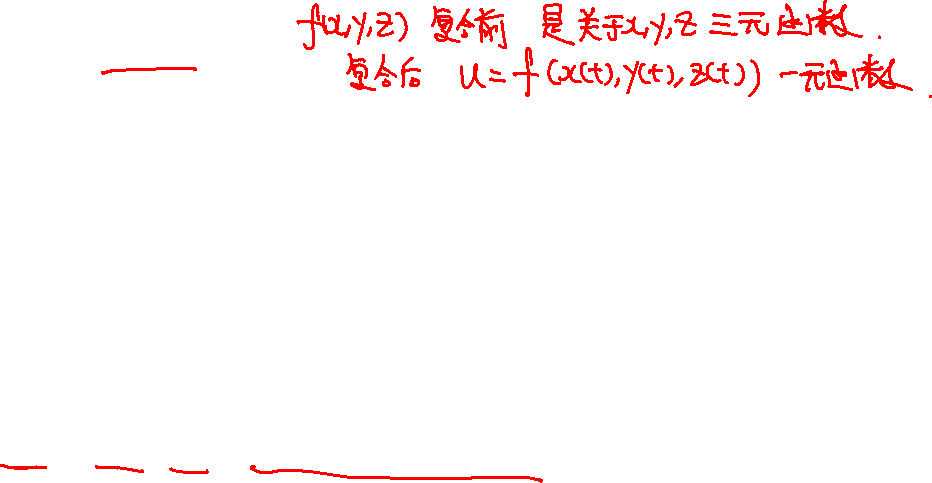 f(x,y,z) 复合前 是关于x,y,z 三元函数.
复合后 u=f(x(t),y(t),z(t)) 一元函数.